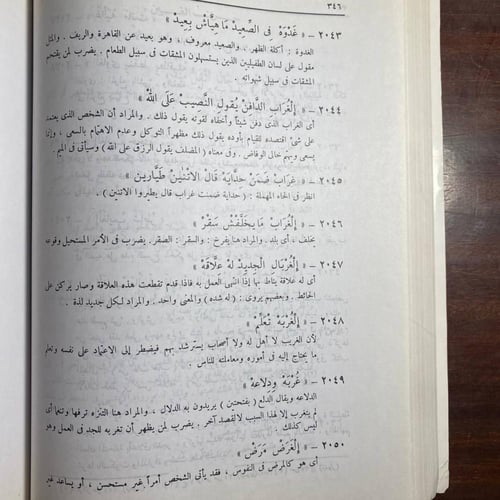 ٣٤٦
٢٠٤٣ – « غَدْوَهْ فِى الصِّعِيدْ مَا هِيَّاشْ بِعِيدْ »
الغدوة : أكلة الظهر . والصعيد معروف ، وهو بعيد عن القاهرة والريف . والمثل
مقول على لسان الطفيليين الذين يستسهلون المشقات فى سبيل الطعام . يضرب لمن يقتحم
المشقات فى سبيل شهواته .
٢٠٤٤ – « إِلْغُرَابِ الدَّافِنْ يِقُولِ النَّصِيبْ عَلَى اللهْ »
أى الغراب الذى دفن شيئاً وأخفاه لقوته يقول ذلك . والمراد أن الشخص الذى يعتمد
على شىء اقتصده للقيام بأوده يقول ذلك مظهراً التوكل وعدم الاهتمام بالسعى ، وإنما
يسعى ويهتم خالى الوفاض . وفى معناه ( المضلف يقول الرزق على الله ) وسيأتى فى الميم .
٢٠٤٥ – « غُرَابْ ضَمَنْ حِدَّايَهْ قَالْ الِاتْنِينْ طَيَّارِينْ »
انظر فى الحاء المهملة : ( حداية ضمنت غراب قال يطيروا الاتنين ) .
٢٠٤٦ – « إِلْغُرَابْ مَا يِخَلِّفْشْ سَقْرْ »
يخلف ، أى يلد . والمراد هنا يفرخ : والسقر : الصقر . يضرب فى الأمر المستحيل وقوعه
٢٠٤٧ – « إِلْغُرْبَالِ الْجِدِيدْ لُهْ عِلَّاقَهْ »
أى له علاقة يناط بها إذا انتهى العمل به فاذا قدم تقطعت هذه العلاقة وصار يركن على
الحائط . وبعضهم يروى : ( له شده ) والمعنى واحد . والمراد لكل جديد لذة .
٢٠٤٨ – « إِلْغُرْبَهْ تْعَلِّمْ »
لأن الغريب لا أهل له ولا أصحاب يسترشد بهم فيضطر إلى الاعتماد على نفسه وتعلم
ما يحتاج إليه فى أموره ومعاملته للناس .
٢٠٤٩ – « غُرْبَهْ وِدْلَاعَهْ »
الدلاعه ويقال الدلع ( بفتحتين ) يريدون به الدلال ، والمراد هنا التنزه ترفها وتنعما أى
لم يتغرب إلا لهذا السبب لالقصد آخر . يضرب لمن يظهر أن تغربه للجد فى العمل وهو
ليس كذلك .
٢٠٥٠ – « إِلْغَرَضْ مَرَضْ »
أى هو كالمرض فى النفوس ، فقد يأتى الشخص أمراً غير مستحسن ، أو يساعد غير